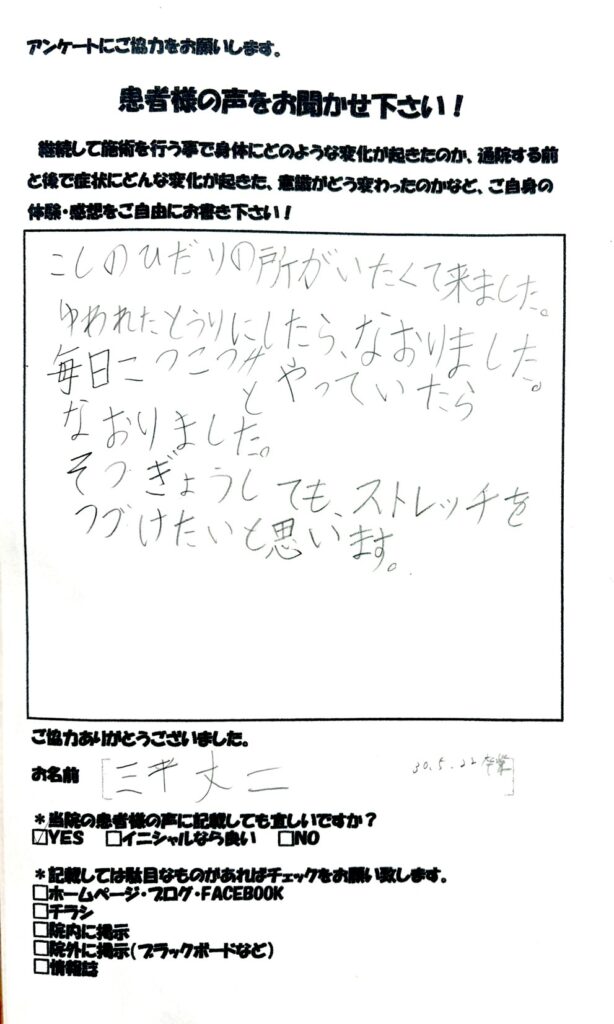 アンケートにご協力をお願いします。
患者様の声をお聞かせ下さい！
継続して施術を行う事で身体にどのような変化が起きたのか、通院する前
と後で症状にどんな変化が起きた、意識がどう変わったのかなど、ご自身の
体験・感想をご自由にお書き下さい！
こしのひだりの所がいたくて来ました。
ゆわれたとうりにしたら、なおりました。
毎日こつこつ
とやっていたら
なおりました。
そつぎょうしても、ストレッチを
つづけたいと思います。
ご協力ありがとうございました。
お名前 三平 丈二 30.5.22 卒業
＊当院の患者様の声に記載しても宜しいですか？
☑YES □イニシャルなら良い □NO
＊記載しては駄目なものがあればチェックをお願い致します。
□ホームページ・ブログ・FACEBOOK
□チラシ
□院内に掲示
□院外に掲示（ブラックボードなど）
□情報誌